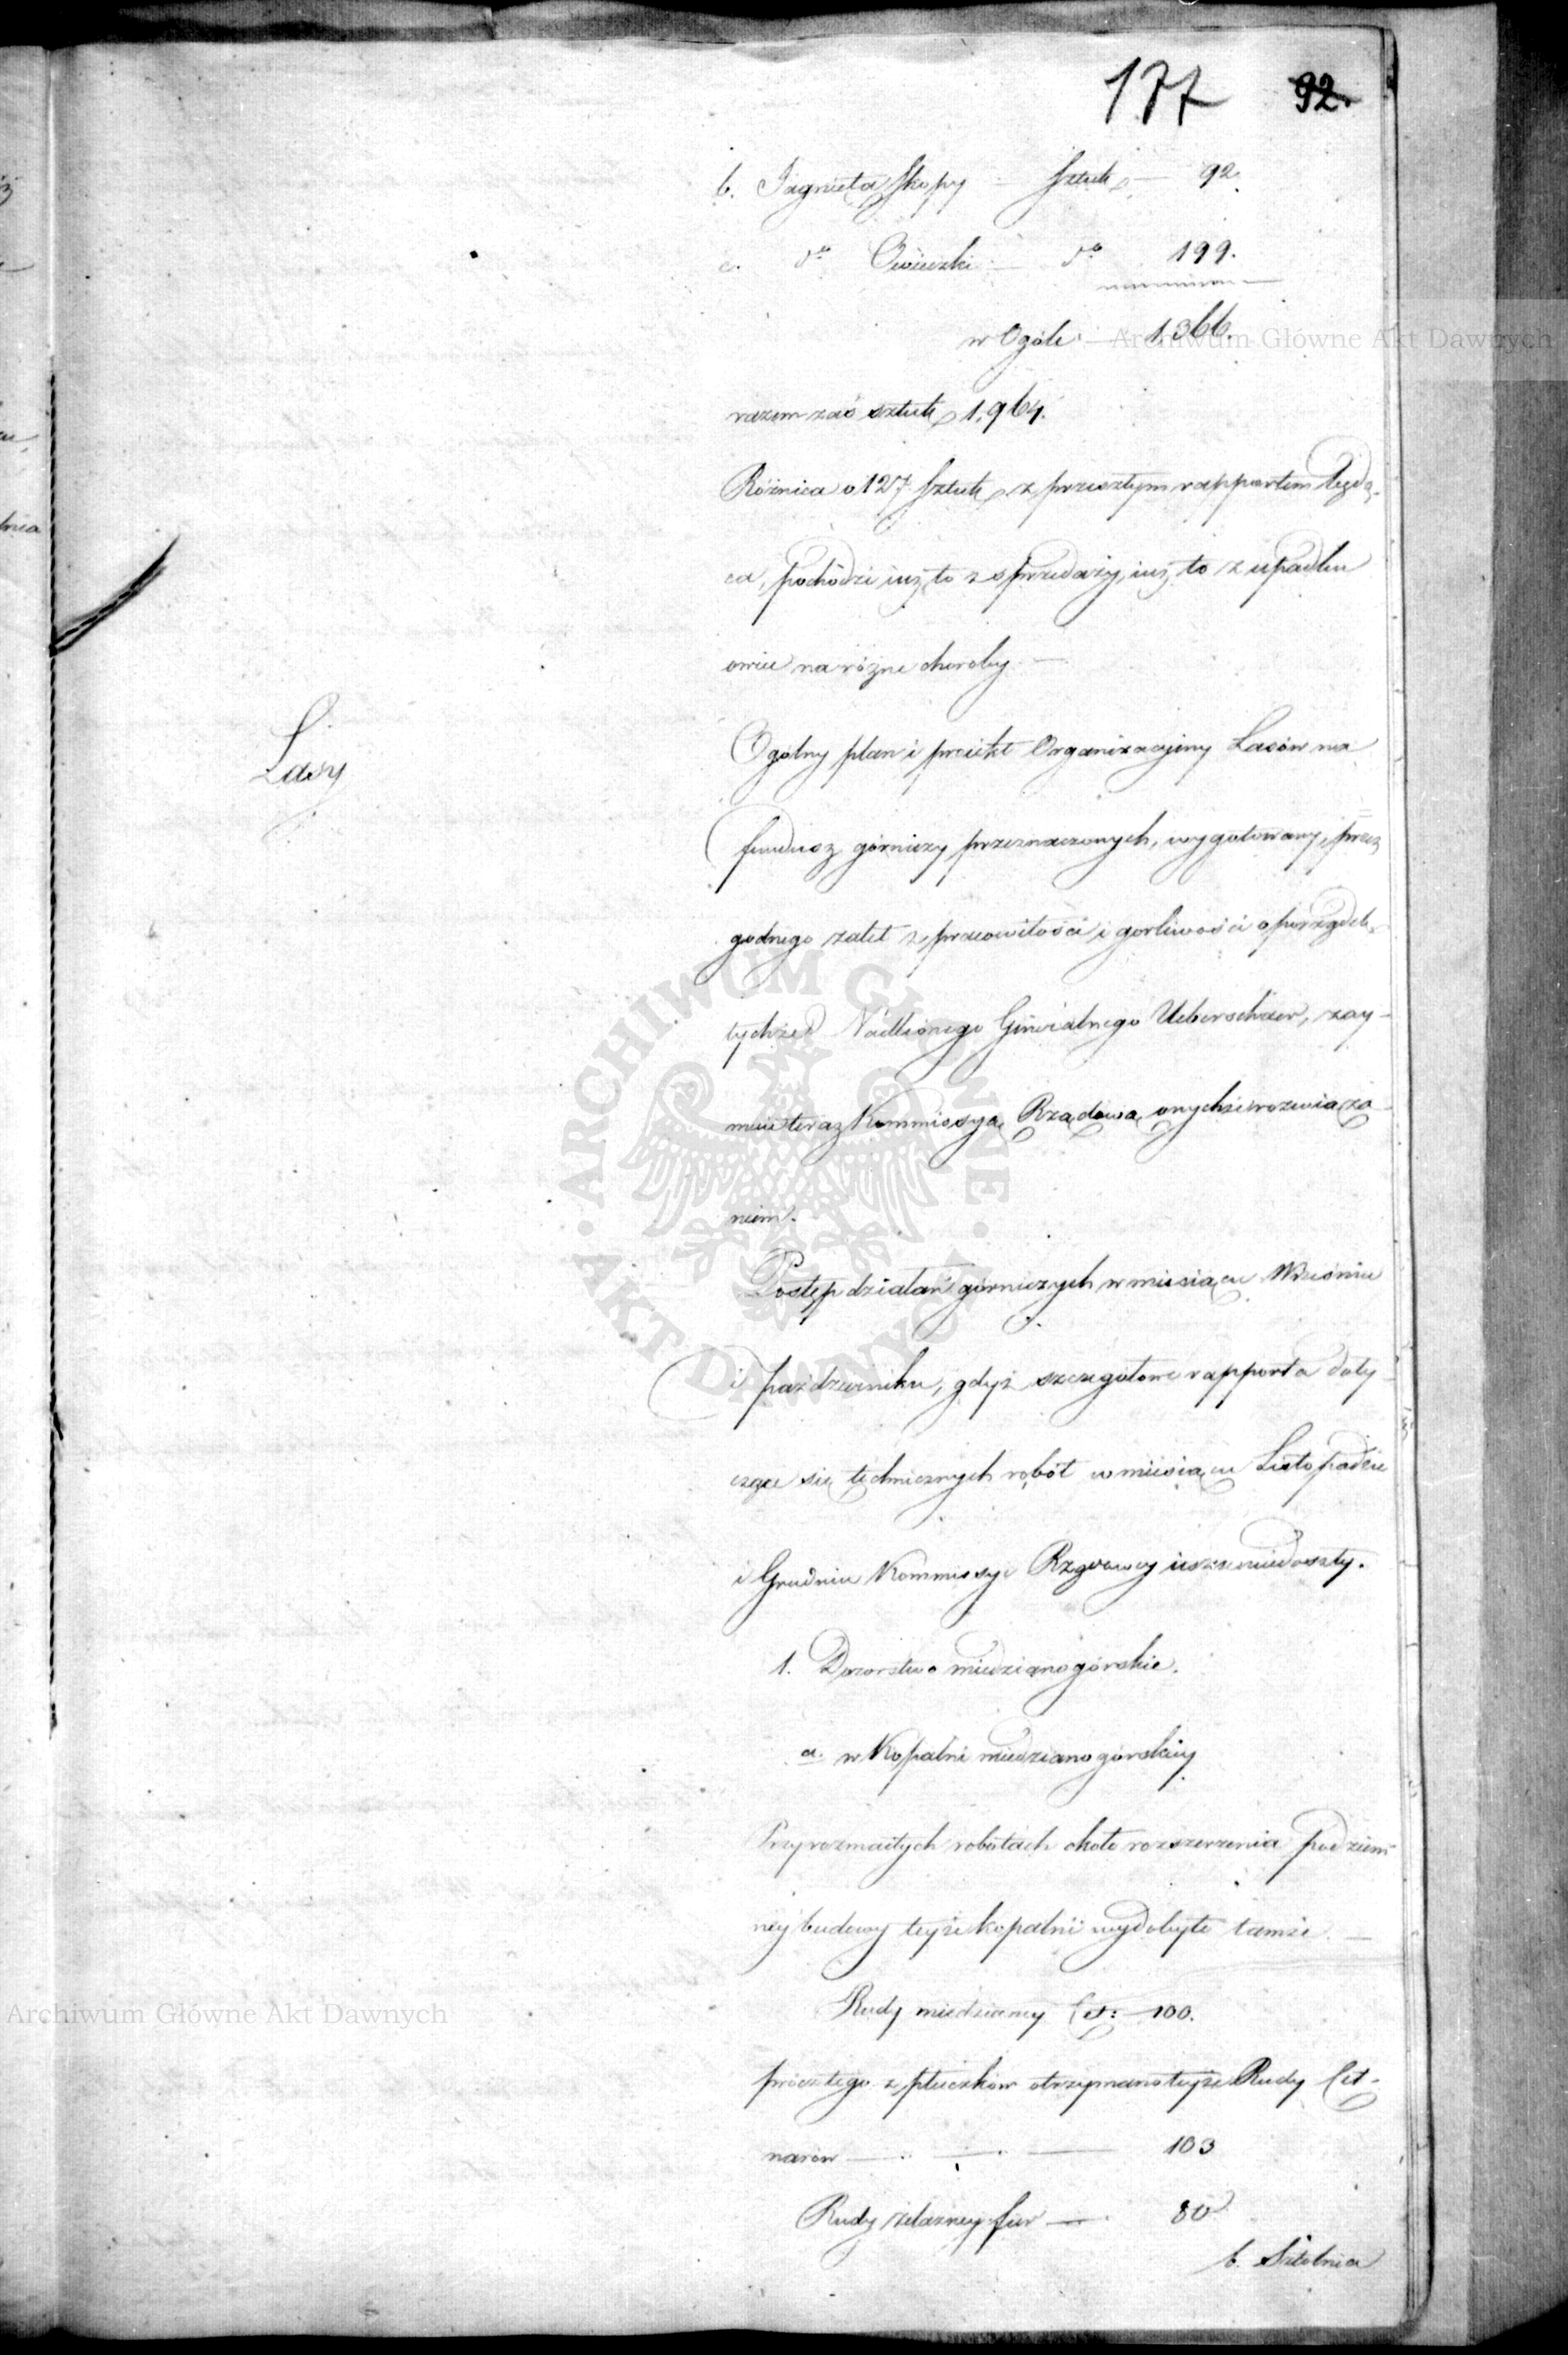 177 92.
b. Jagnięta Skopy — Sztuk — 92.
c. do Owieczki — do 199.
w Ogóle — 1,366.
razem zaś sztuk 1,964.
Różnica o 127 Sztuk z przeszłym rapportem będą-
ca, pochodzi iuż to z sprzedaży, iuż to z upadku
owiec na różne choroby. —
Lasy
Ogólny plan i proiekt Organizacyiny Lasów na
fundusz górniczy przeznaczonych, wygotowany przez
godnego zalet z pracowitości i gorliwości o porządek
tychże Nadleśnego Generalnego Ueberschaer, zay-
muie teraz Kommissyą Rządową onychże rozwiąza-
niem.
Postęp działań górniczych w miesiącu Wrześniu
i październiku, gdyż szczegółowe rapporta doty-
czące się technicznych robót w miesiącu Listopadzie
i Grudniu Kommissyi Rządowey ieszcze niedoszły.
1. Dozorstwo miedzianogórskie.
a. w Kopalni miedzianogórskiey
Przy rozmaitych robotach około rozszerzenia podziem-
ney budowy teyże kopalni wydobyto tamże —
Rudy miedzianey Cet: — 100.
prócz tego z płuczków otrzymano teyże Rudy Cet-
narów — 103
Rudy żelazney fur — 80
b. Sztolnia
Archiwum Główne Akt Dawnych
Archiwum Główne Akt Dawnych
ARCHIWUM GŁÓWNE AKT DAWNYCH